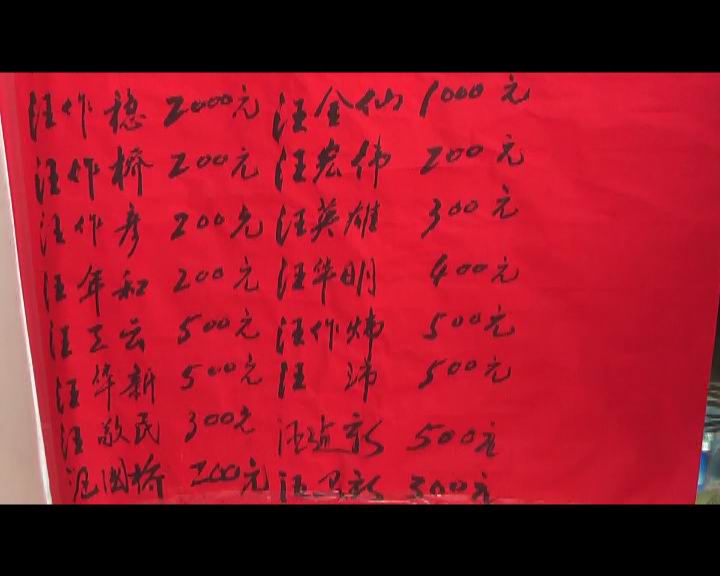 汪作稳 2000元 汪金仙 1000元
汪作桥 200元 汪宏伟 200元
汪作彦 200元 汪英雄 300元
汪年和 200元 汪华明 400元
汪工云 500元 汪作炜 500元
汪华新 500元 汪 沛 500元
汪敬民 300元 汪新 500元
国桥 200元 汪卫新 300元